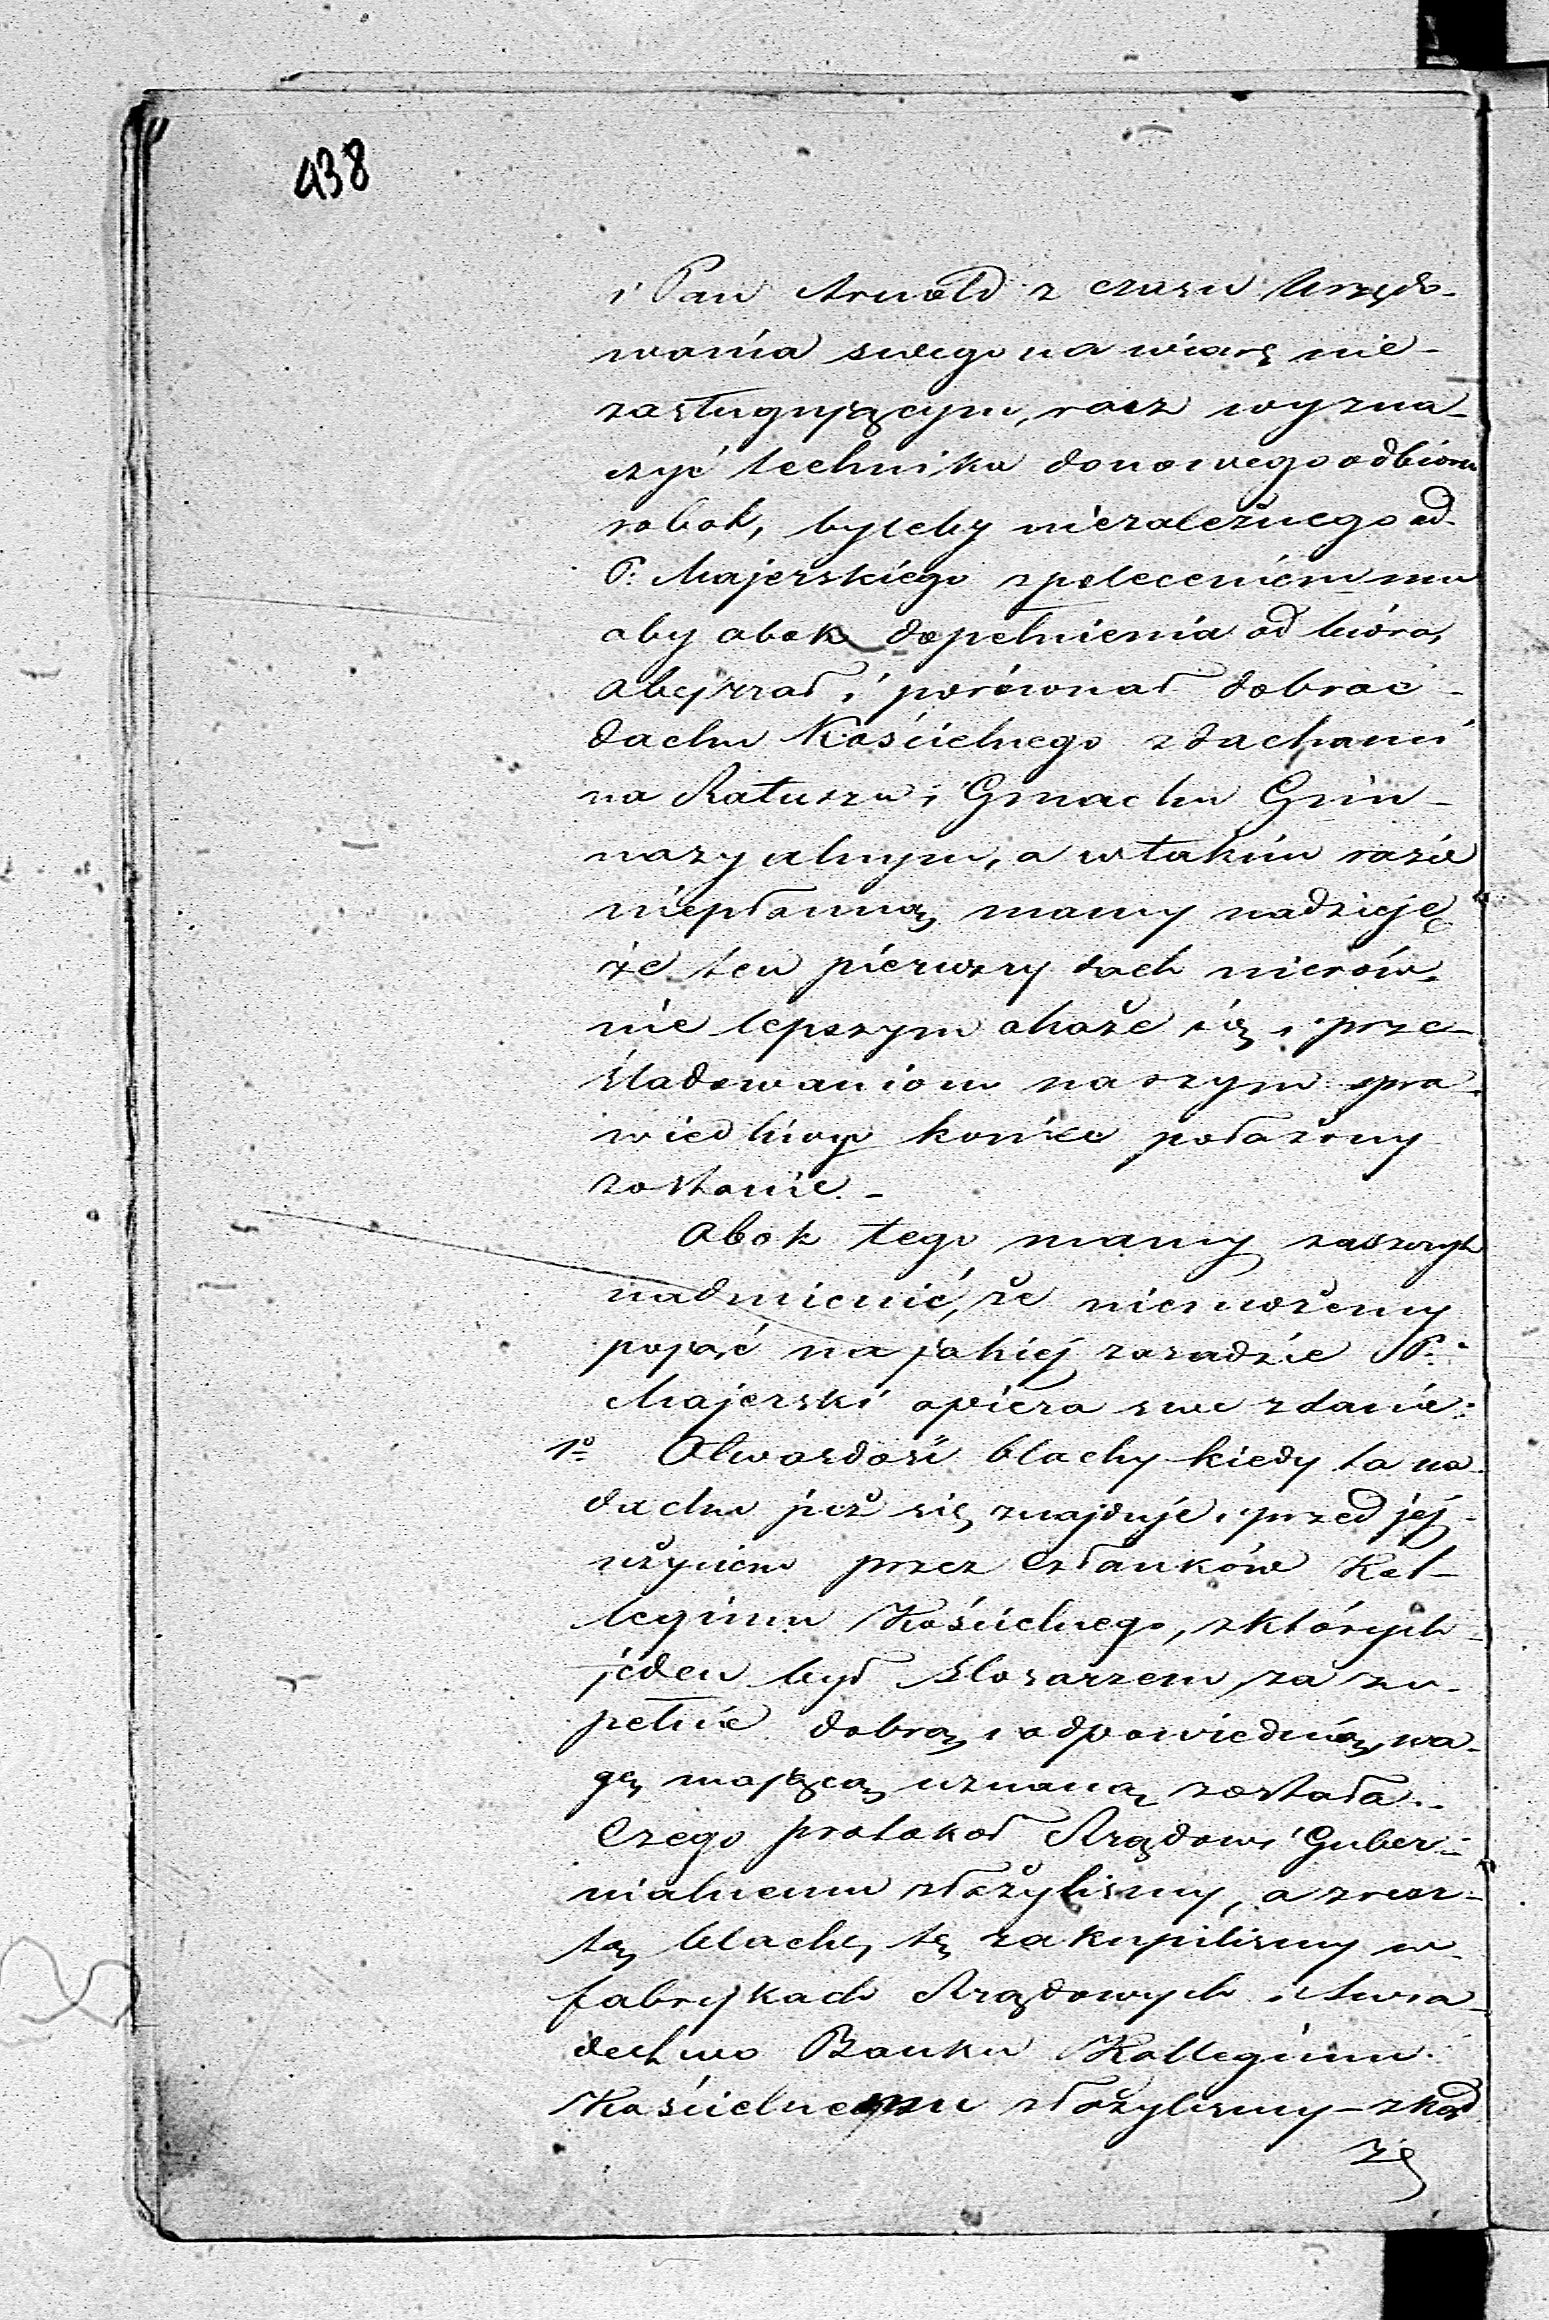 438
i Pan Arnold z czasu Urzędo-
wania swego na wiarę nie-
zasługującym, racz wyzna-
czyć technika do nowego odbioru
robót, byleby niezależnego od
P. Majerskiego z poleceniem mu
aby obok dopełnienia odbioru,
obejrzał i porównał dobroć
dachu Kościelnego z dachami
na Ratuszu i Gmachu Gim-
nazyalnym, a w takim razie
niepłonną mamy nadzieję
że ten pierwszy dach nierów-
nie lepszym okaże się i prze-
śladowaniom naszym spra-
wiedliwy koniec położony
zostanie.-
Obok tego mamy zaszczyt
nadmienić, że niemożemy
pojąć na jakiej zasadzie P.
Majerski opiera swe zdanie:
1o Otwardości blachy kiedy ta na
dachu już się znajduje, i przed jej
użyciem przez członków Kol-
legium Kościelnego, z których
jeden był ślosarzem, za zu-
pełnie dobrą i odpowiednią wa-
gę mającą uznaną została.
Czego protokół Rządowi Guber-
nialnemu złożyliśmy, a zresz-
tą blachę tę zakupiliśmy w
fabrykach Rządowych i świa-
dectwo Banku Kollegium
Kościelnemu złożyliśmy - zkąd
że